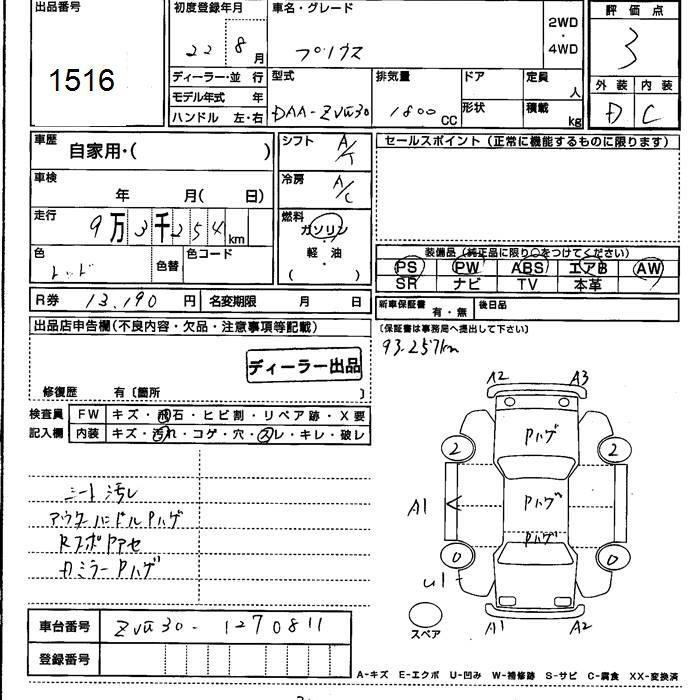 出品番号
1516
初度登録年月
22 8月
車名・グレード
プリウス
2WD
・
4WD
評価点
3
外装 内装
D C
ディーラー・並行
モデル年式 年
ハンドル 左・右
型式
DAA-ZVW30
排気量
1800 CC
ドア
形状
定員
人
積載
kg
車歴
自家用・( )
シフト
A/T
車検
年 月( 日)
冷房
A/C
走行
9万3千254km
燃料
ガソリン
軽・油
( ・ )
色
レッド
色替
色コード
R券 13,190 円
名変期限 月 日
セールスポイント(正常に機能するものに限ります)
装備品(純正品に限り○をつけてください)
PS PW ABS エアB AW
SR ナビ TV 本革
新車保証書 有・無
後日品
(保証書は事務局へ提出して下さい)
93,257km
出品店申告欄(不良内容・欠品・注意事項等記載)
ディーラー出品
修復歴 有〔箇所 〕
検査員
記入欄
FW キズ・飛石・ヒビ割・リペア跡・X要
内装 キズ・汚れ・コゲ・穴・スレ・キレ・破レ
シート汚レ
アウターハンドルPハゲ
RスポPアセ
ドミラーPハゲ
A2 A3
Pハゲ
2 2
A1
Pハゲ
Pハゲ
0 0
U1
スペア
A1 A2
車台番号
ZVW30-1270811
登録番号
A-キズ E-エクボ U-凹み W-補修跡 S-サビ C-腐食 XX-変換済